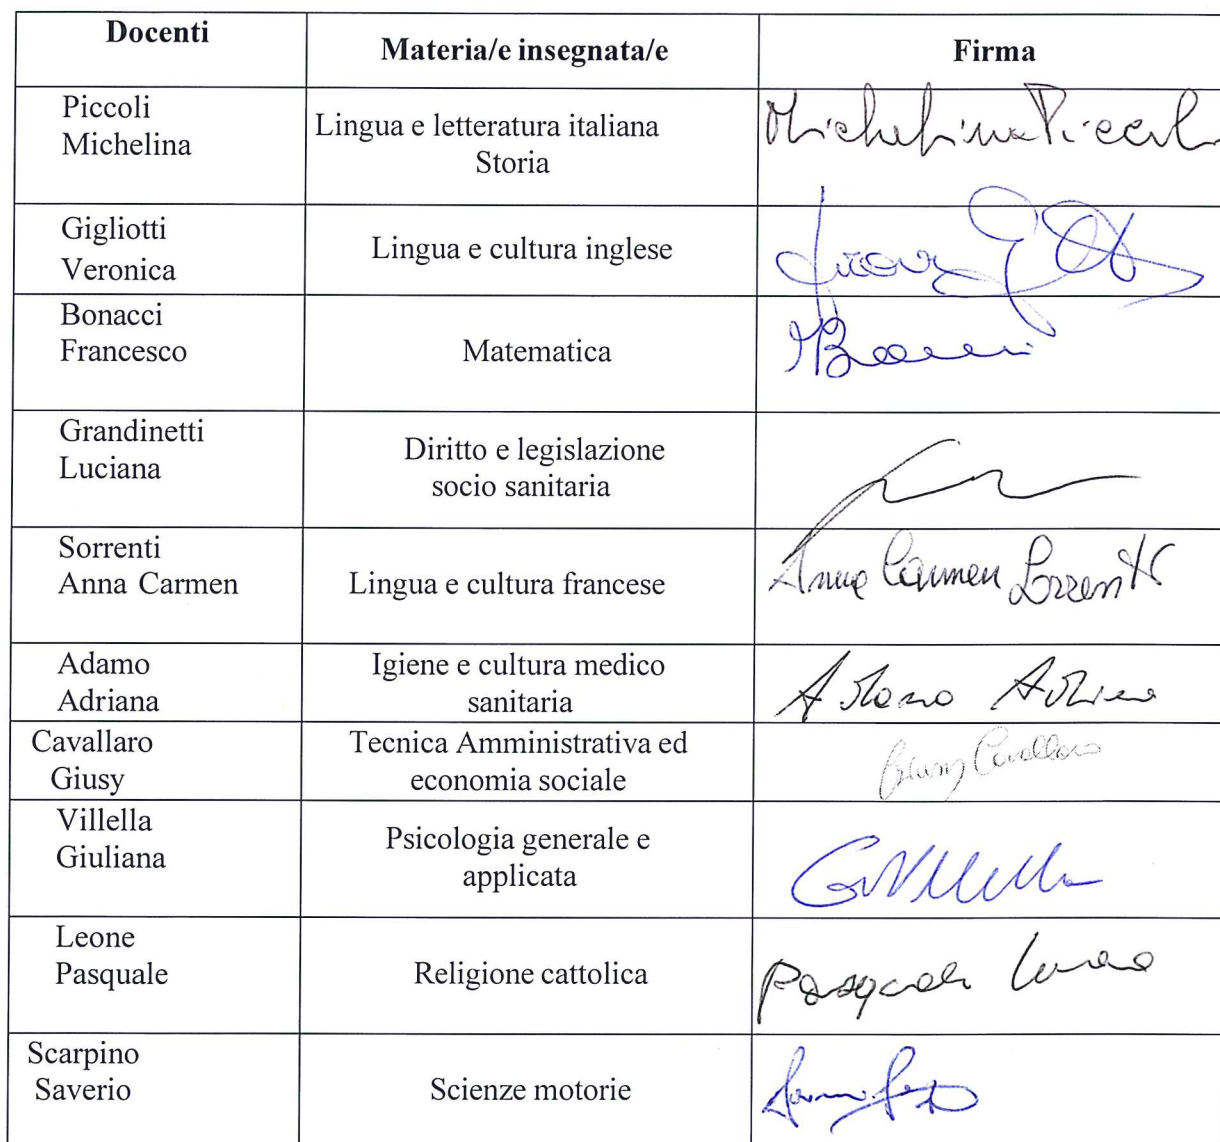 Docenti
Materia/e insegnata/e
Firma
Piccoli
Michelina
Lingua e letteratura italiana
Storia
Michelina Piccoli
Gigliotti
Veronica
Lingua e cultura inglese
Bonacci
Francesco
Matematica
Grandinetti
Luciana
Diritto e legislazione
socio sanitaria
Sorrenti
Anna Carmen
Lingua e cultura francese
Anna Carmen Sorrenti
Adamo
Adriana
Igiene e cultura medico
sanitaria
Adamo Adriana
Cavallaro
Giusy
Tecnica Amministrativa ed
economia sociale
Giusy Cavallaro
Villella
Giuliana
Psicologia generale e
applicata
G Villella
Leone
Pasquale
Religione cattolica
Pasquale Leone
Scarpino
Saverio
Scienze motorie